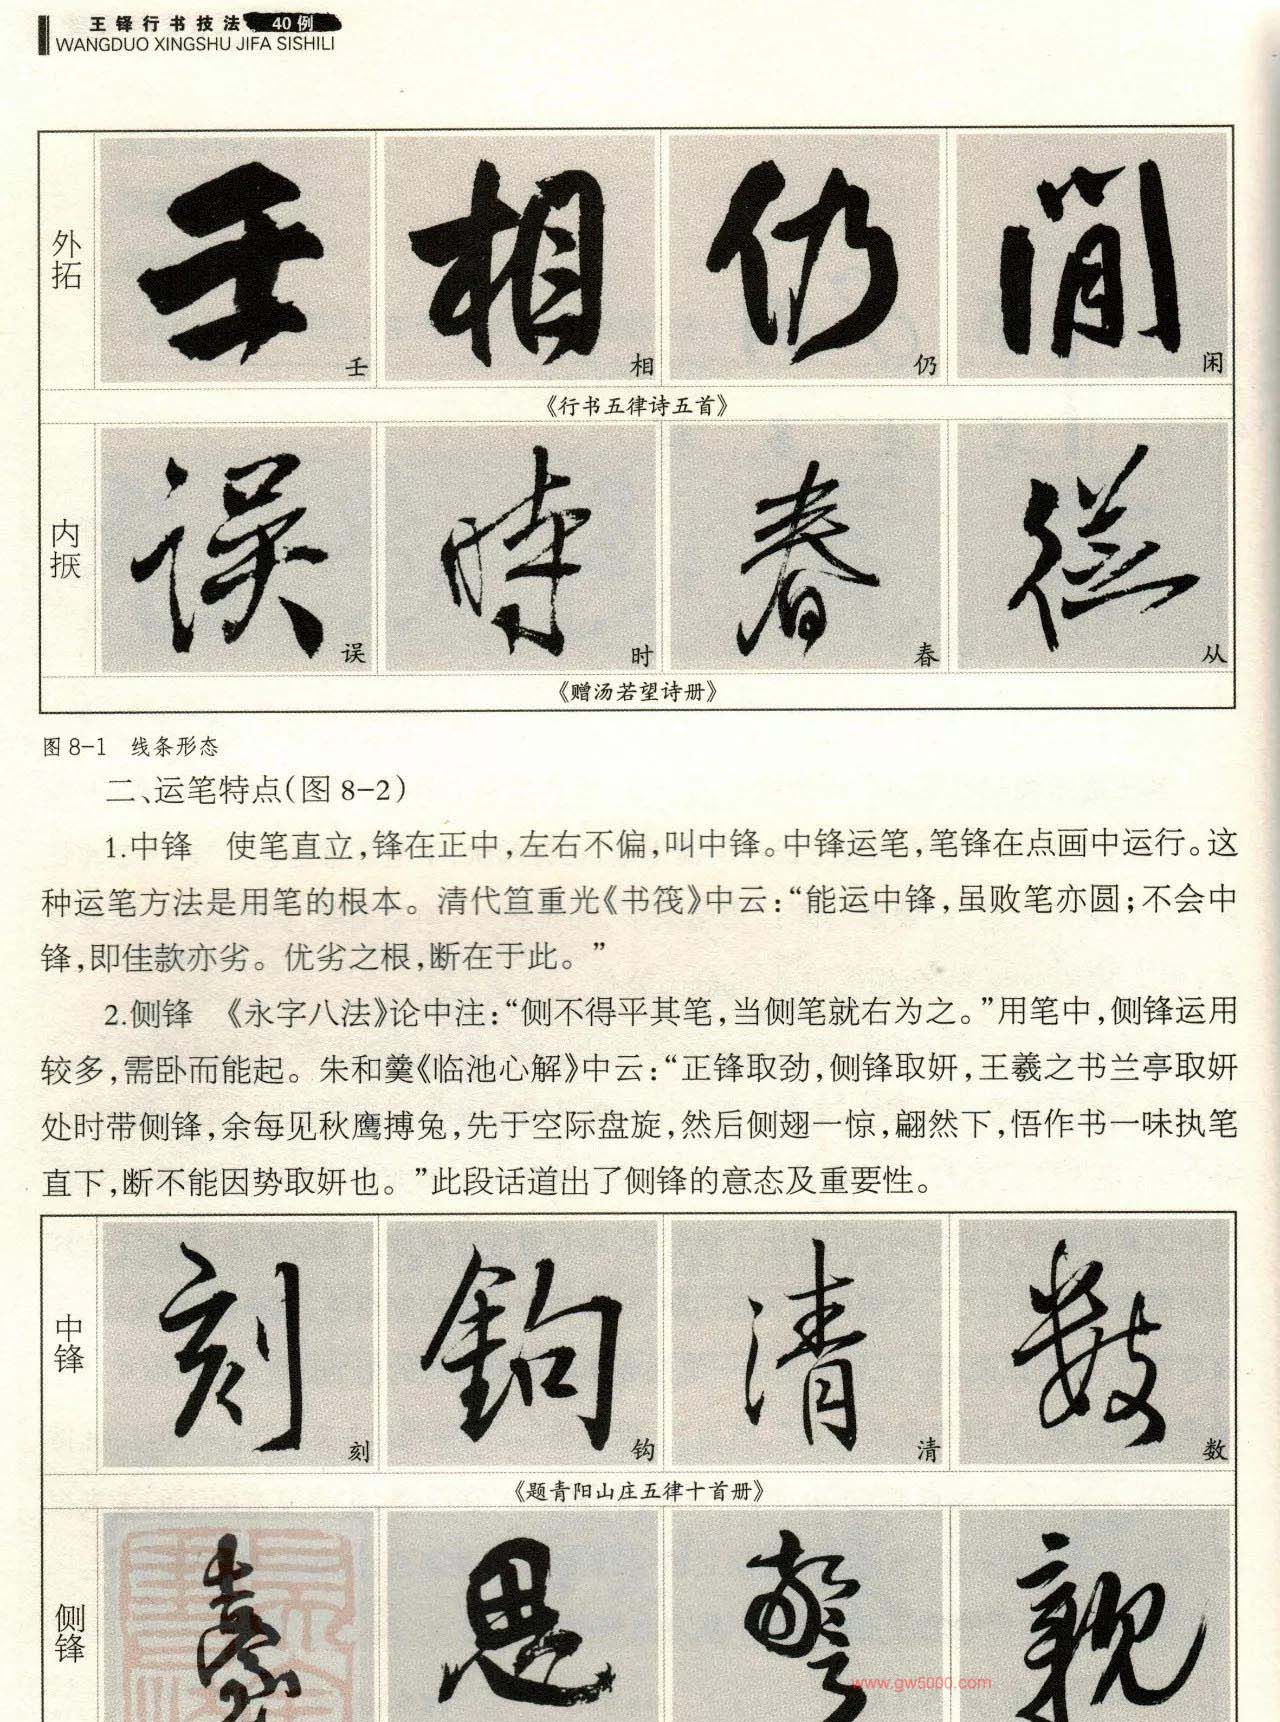 王铎行书技法 40例
WANGDUO XINGSHU JIFA SISHILI
外拓
壬 相 仍 闲
《行书五律诗五首》
内擫
误 时 春 从
《赠汤若望诗册》
图 8-1 线条形态
二、运笔特点(图 8-2)
1.中锋 使笔直立,锋在正中,左右不偏,叫中锋。中锋运笔,笔锋在点画中运行。这
种运笔方法是用笔的根本。清代笪重光《书筏》中云:“能运中锋,虽败笔亦圆;不会中
锋,即佳款亦劣。优劣之根,断在于此。”
2.侧锋 《永字八法》论中注:“侧不得平其笔,当侧笔就右为之。”用笔中,侧锋运用
较多,需卧而能起。朱和羹《临池心解》中云:“正锋取劲,侧锋取妍,王羲之书兰亭取妍
处时带侧锋,余每见秋鹰搏兔,先于空际盘旋,然后侧翅一惊,翩然下,悟作书一味执笔
直下,断不能因势取妍也。”此段话道出了侧锋的意态及重要性。
中锋
刻 钩 清 数
《题青阳山庄五律十首册》
侧锋
思 親
www.gw5000.com